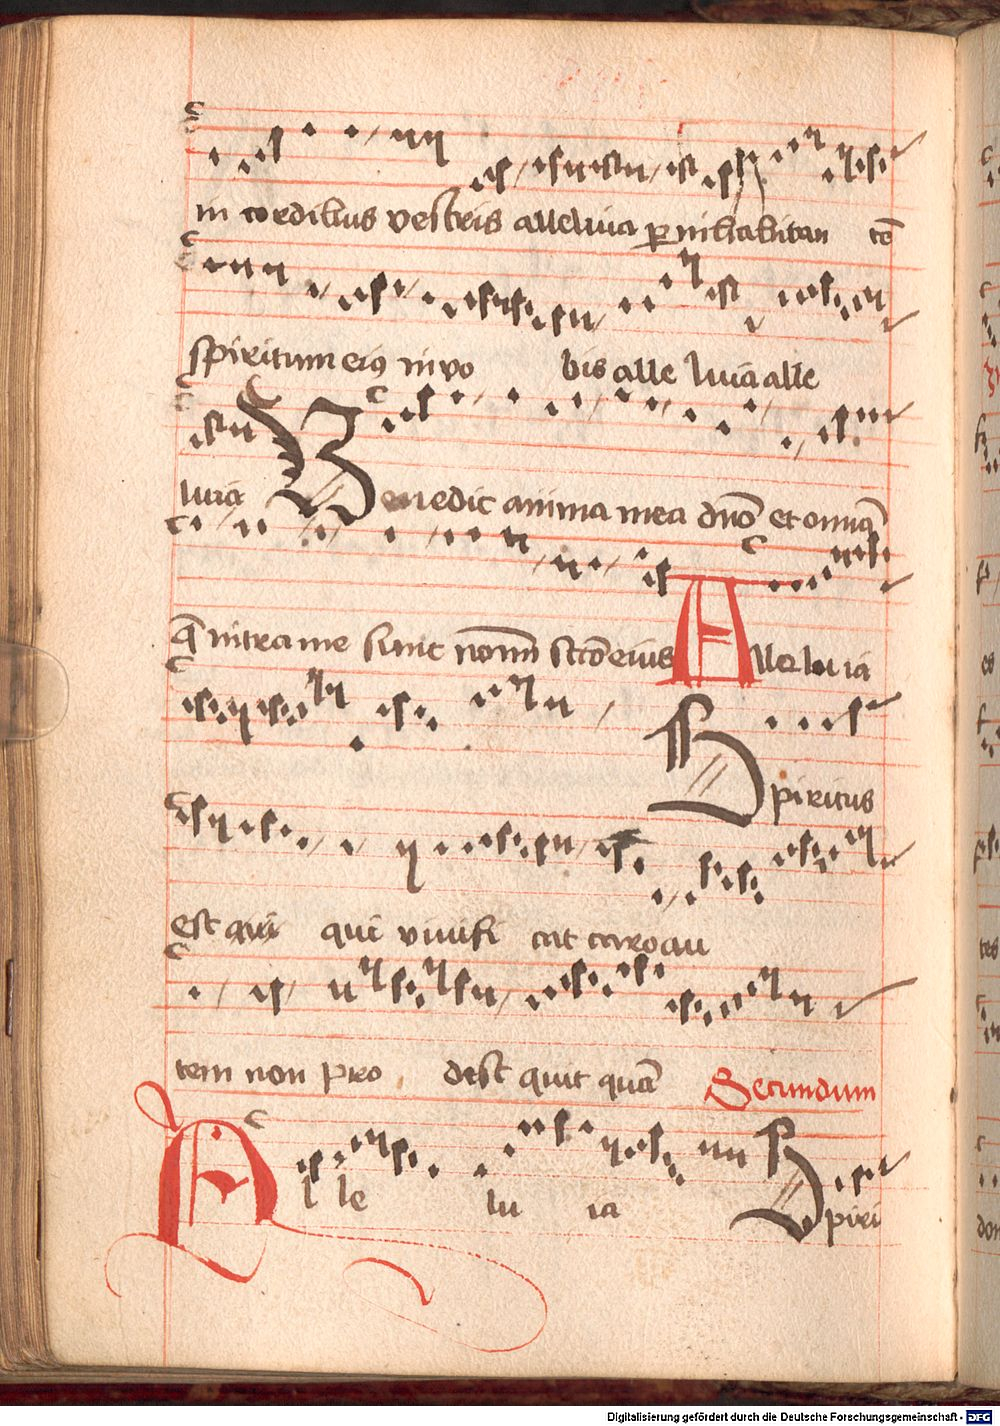 in cordibus vestris alleluia ꝑ inhabitan tē
spiritum eiꝰ in vo bis alle luia alle
luia Benedic anima mea dn̄o et omīa
q̄ intra me sunt nomī sctō eius Alleluia
Spiritus
est qui qui vivifi cat caro au
tem non pro dest quit quā Secundum
Al le lu ia Spiri
Digitalisierung gefördert durch die Deutsche Forschungsgemeinschaft - DFG